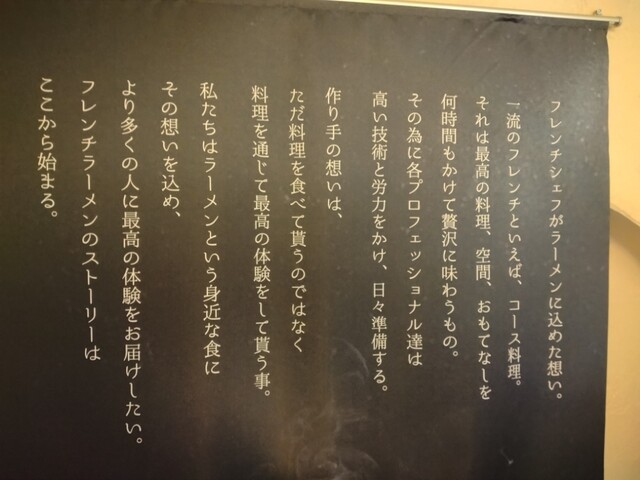 フレンチシェフがラーメンに込めた想い。
一流のフレンチといえば、コース料理。
それは最高の料理、空間、おもてなしを
何時間もかけて贅沢に味わうもの。
その為に各プロフェッショナル達は
高い技術と労力をかけ、日々準備する。
作り手の想いは、
ただ料理を食べて貰うのではなく
料理を通じて最高の体験をして貰う事。
私たちはラーメンという身近な食に
その想いを込め、
より多くの人に最高の体験をお届けしたい。
フレンチラーメンのストーリーは
ここから始まる。